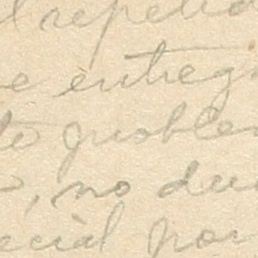 l repetid
e entreg
te proble
, no du
ecial par